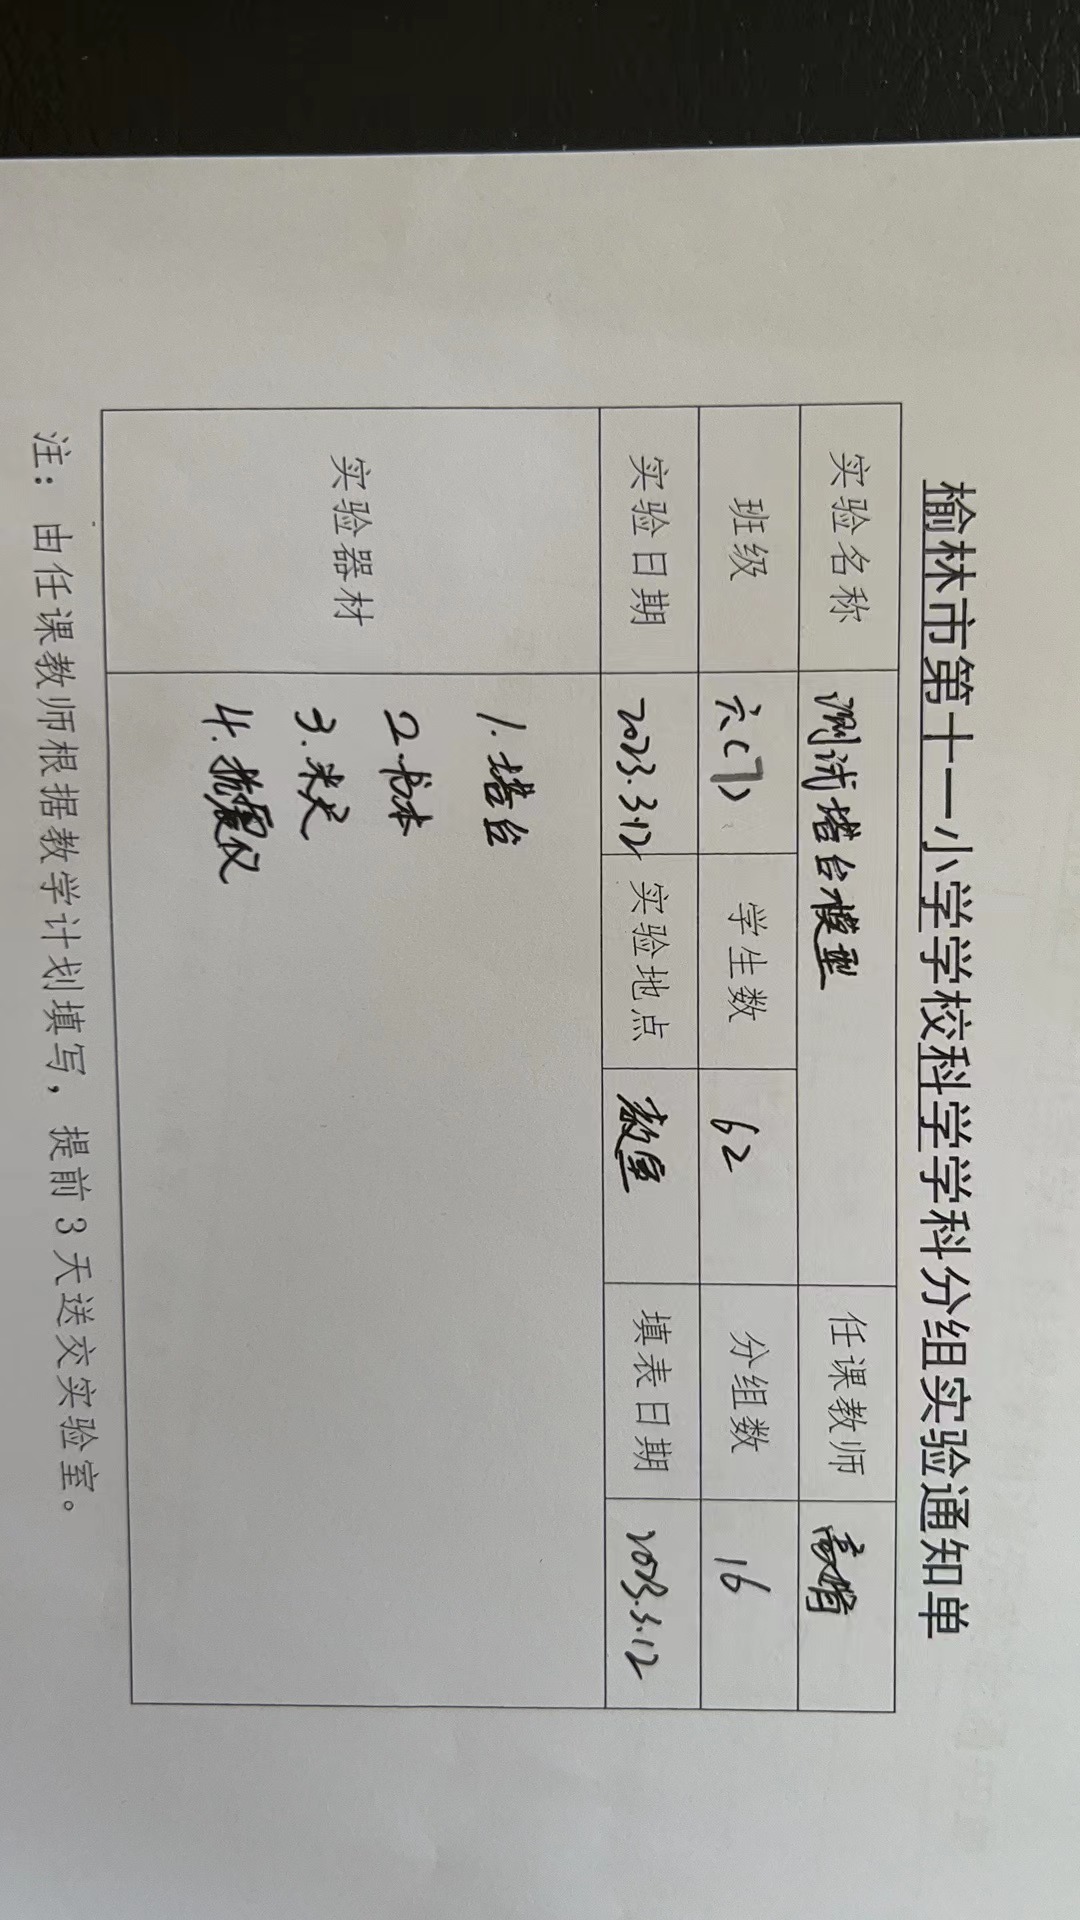 榆林市第十一小学学校科学学科分组实验通知单
实验名称 测试塔台模型 任课教师
班级 六(7) 学生数 62 分组数 16
实验日期 2023.3.12 实验地点 教室 填表日期 2023.3.12
实验器材
1.塔台
2.书本
3.米尺
4.抗震仪
注：由任课教师根据教学计划填写，提前3天送交实验室。